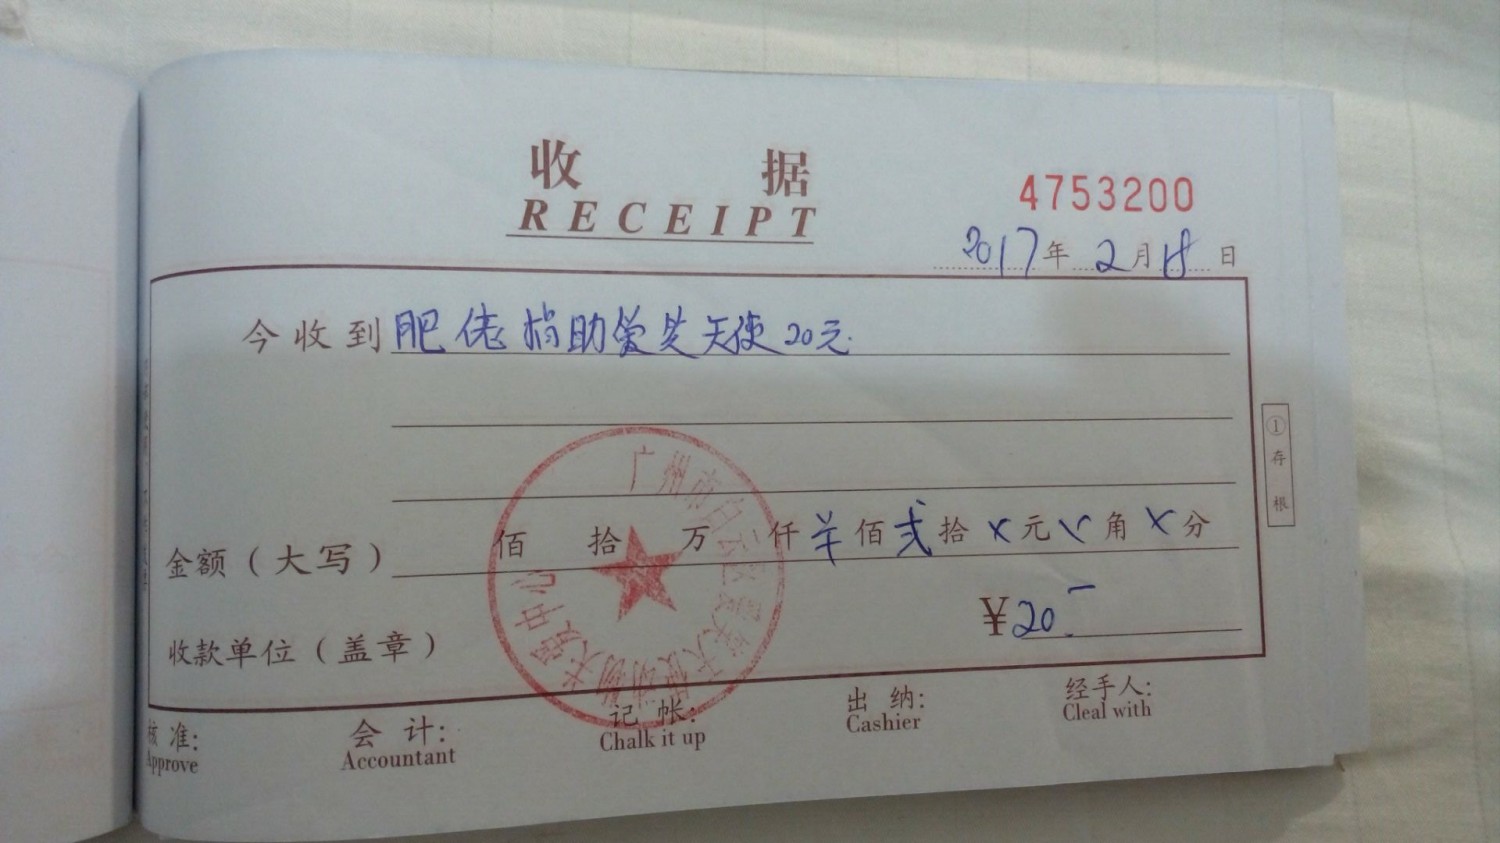 收 据
RECEIPT
4753200
2017年2月18日
今收到肥佬捐助爱芷天使20元.
金额(大写) 佰 拾 万 仟 羊 佰 弍 拾 x 元 x 角 x 分
¥20.-
收款单位(盖章)
广州市白云区
天使动物关爱中心
①存根
核 准:
会 计:
记 帐:
出 纳:
经手人:
Approve
Accountant
Chalk it up
Cashier
Cleal with